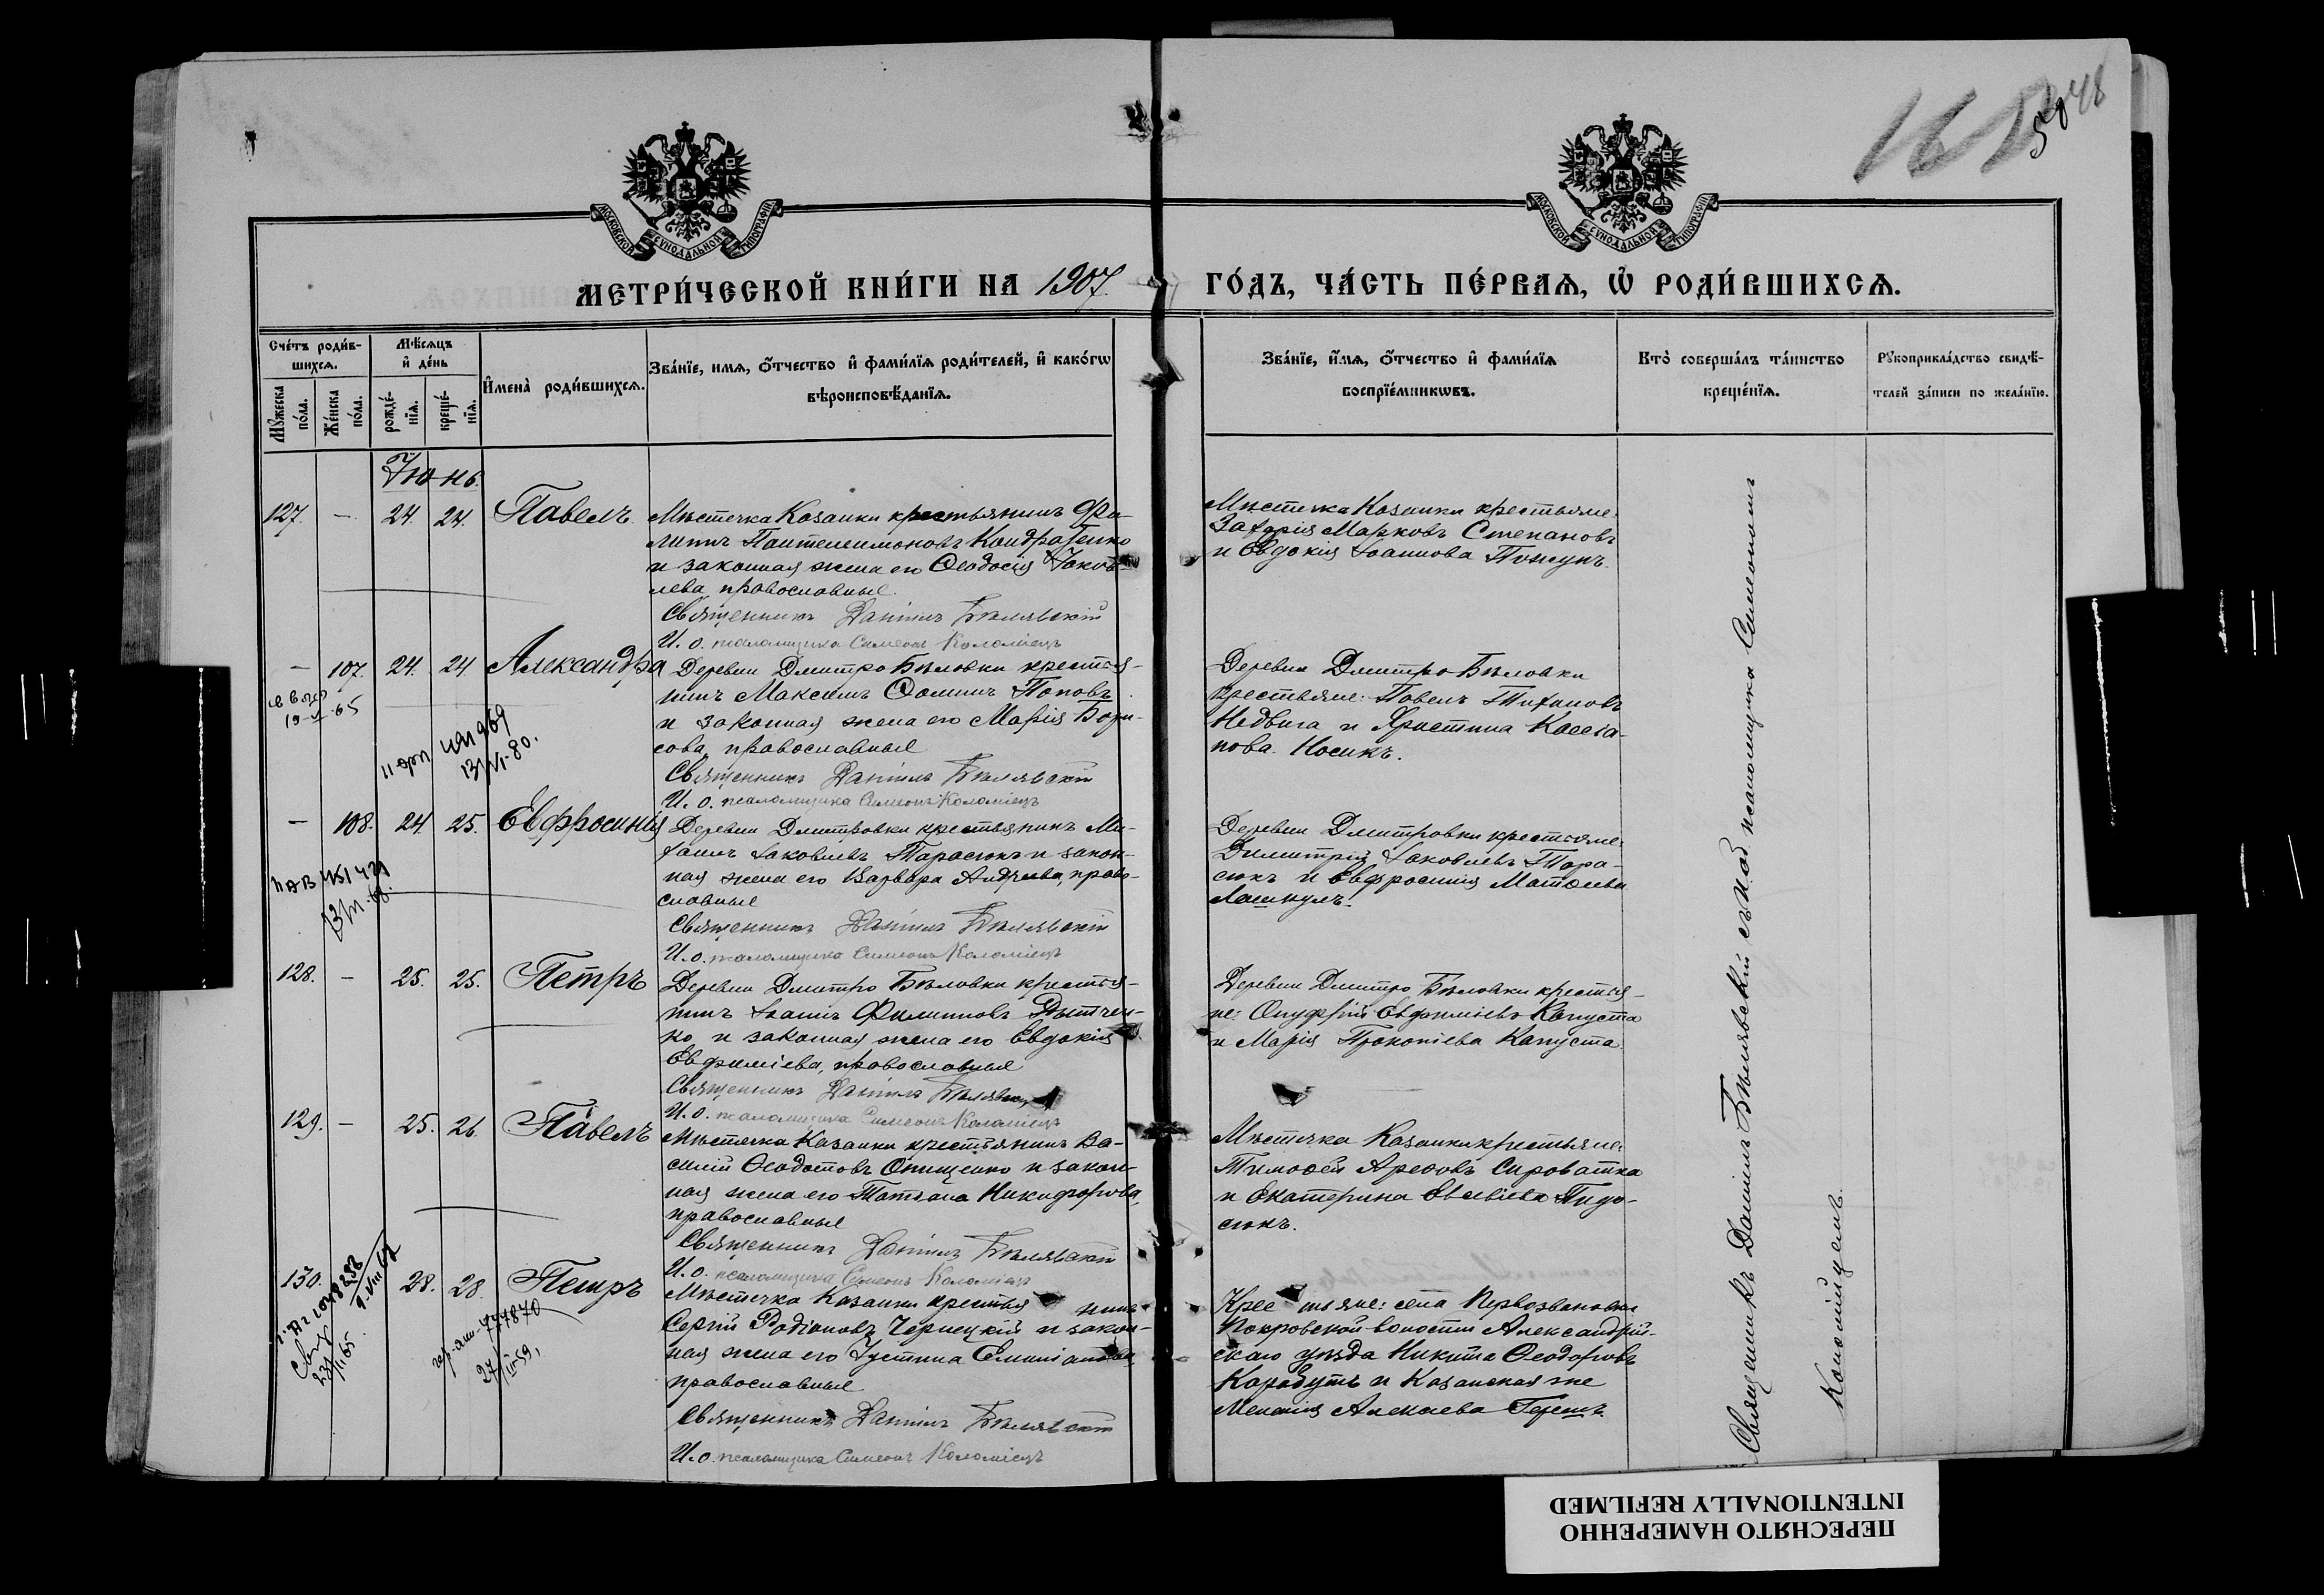 48
МОСКОВСКОЙ СУНОДАЛЬНОЙ ТИПОГРАФІИ
МОСКОВСКОЙ СУНОДАЛЬНОЙ ТИПОГРАФІИ
МЕТРИ́ЧЕСКОЙ КНИ́ГИ НА 1907 ГО́ДЪ, ЧА́СТЬ ПЕ́РВАѦ, Ѽ РОДИ́ВШИХСѦ.
Сче́тъ роди́в-
шихсѧ.
Мꙋ́жеска по́ла.
Же́нска по́ла.
Мѣ́сѧцъ
и҆ де́нь
рожде́-
нїѧ.
креще́-
нїѧ.
И҆мена̀ роди́вшихсѧ.
Зва́нїе, имѧ, ѻ҆́тчество и҆ фами́лїѧ роди́телей, и҆ како́гѡ
вѣроисповѣ́данїѧ.
Зва́нїе, и҆́мѧ, ѻ҆́тчество и҆ фами́лїѧ
воспрїе́мникѡвъ.
Кто̀ соверша́лъ та́инство
креще́нїѧ.
Рꙋкоприкла́дство свидѣ́-
телей за́писи по жела́нїю.
Іюнь.
127. - 24. 24. Павелъ
Мѣстечка Казанки крестьянинъ Фи-
липпъ Пантелеимоновъ Кондратенко
и законная жена его Ѳеодосія Іаков-
лева, православные.
Священникъ Даніилъ Бѣлявскій
И. о. псаломщика Симеонъ Коломіецъ
Мѣстечка Казанки крестьяне:
Захарія Марковъ Степановъ
и Евдокія Іоаннова
- 107. 24. 24. Александра
Деревни Дмитро Бѣловки крестья-
нинъ Максимъ Ѳоминъ Поповъ
и законная жена его Марія Бори-
сова, православные
Священникъ Даніилъ Бѣлявскій
И. о. псаломщика Симеонъ Коломіецъ
Деревни Дмитро Бѣловки
крестьяне: Павелъ Тихоновъ
Недвига и Христина Кассіа-
нова Носикъ.
- 108. 24. 25. Евфросинія
Деревни Дмитровки крестьянинъ Ми-
хаилъ Іаковлевъ Тарасюкъ и закон-
ная жена его Варвара Андреева, право-
славные
Священникъ Даніилъ Бѣлявскій
И. о. псаломщика Симеонъ Коломіецъ
Деревни Дмитровки крестьяне:
Димитрій Іаковлевъ Тара-
сюкъ и Евфросинія Матѳеева
128. - 25. 25. Петръ
Деревни Дмитро Бѣловки крестья-
нинъ Іоаннъ Филипповъ Дытчен-
ко и законная жена его Евдокія
Евфиміева, православные
Священникъ Даніилъ Бѣлявскій
И. о. псаломщика Симеонъ Коломіецъ
Деревни Дмитро Бѣловки крестья-
не: Онуфрій Евфиміевъ Капуста
и Марія Прокопіева Капуста.
129. - 25. 26. Павелъ
Мѣстечка Казанки крестьянинъ Ва-
силій Ѳеодотовъ Онищенко и закон-
ная жена его Татіана Никифорова,
православные
Священникъ Даніилъ Бѣлявскій
И. о. псаломщика Симеонъ Коломіецъ
Мѣстечка Казанки крестьяне:
Тимоѳей Арефовъ Сироватка
и Екатерина Евсевіева
сюкъ.
130. 28. 28. Петръ
Мѣстечка Казанки крестья нинъ
Сергій Родіоновъ Чернецкій и закон-
ная жена его Іустина Емиліанова,
православные
Священникъ Даніилъ Бѣлявскій
И. о. псаломщика Симеонъ Коломіецъ
Крес тьяне: села Первозвановки
Покровской волости Александрій-
скаго уѣзда Никита Ѳеодоровъ
Карабутъ и Казанская же
Меланія Алексѣева
Священникъ Даніилъ Бѣлявскій съ и. об. псаломщика Симеономъ
Коломійцемъ.
ПЕРЕСНЯТО НАМЕРЕННО
INTENTIONALLY REFILMED